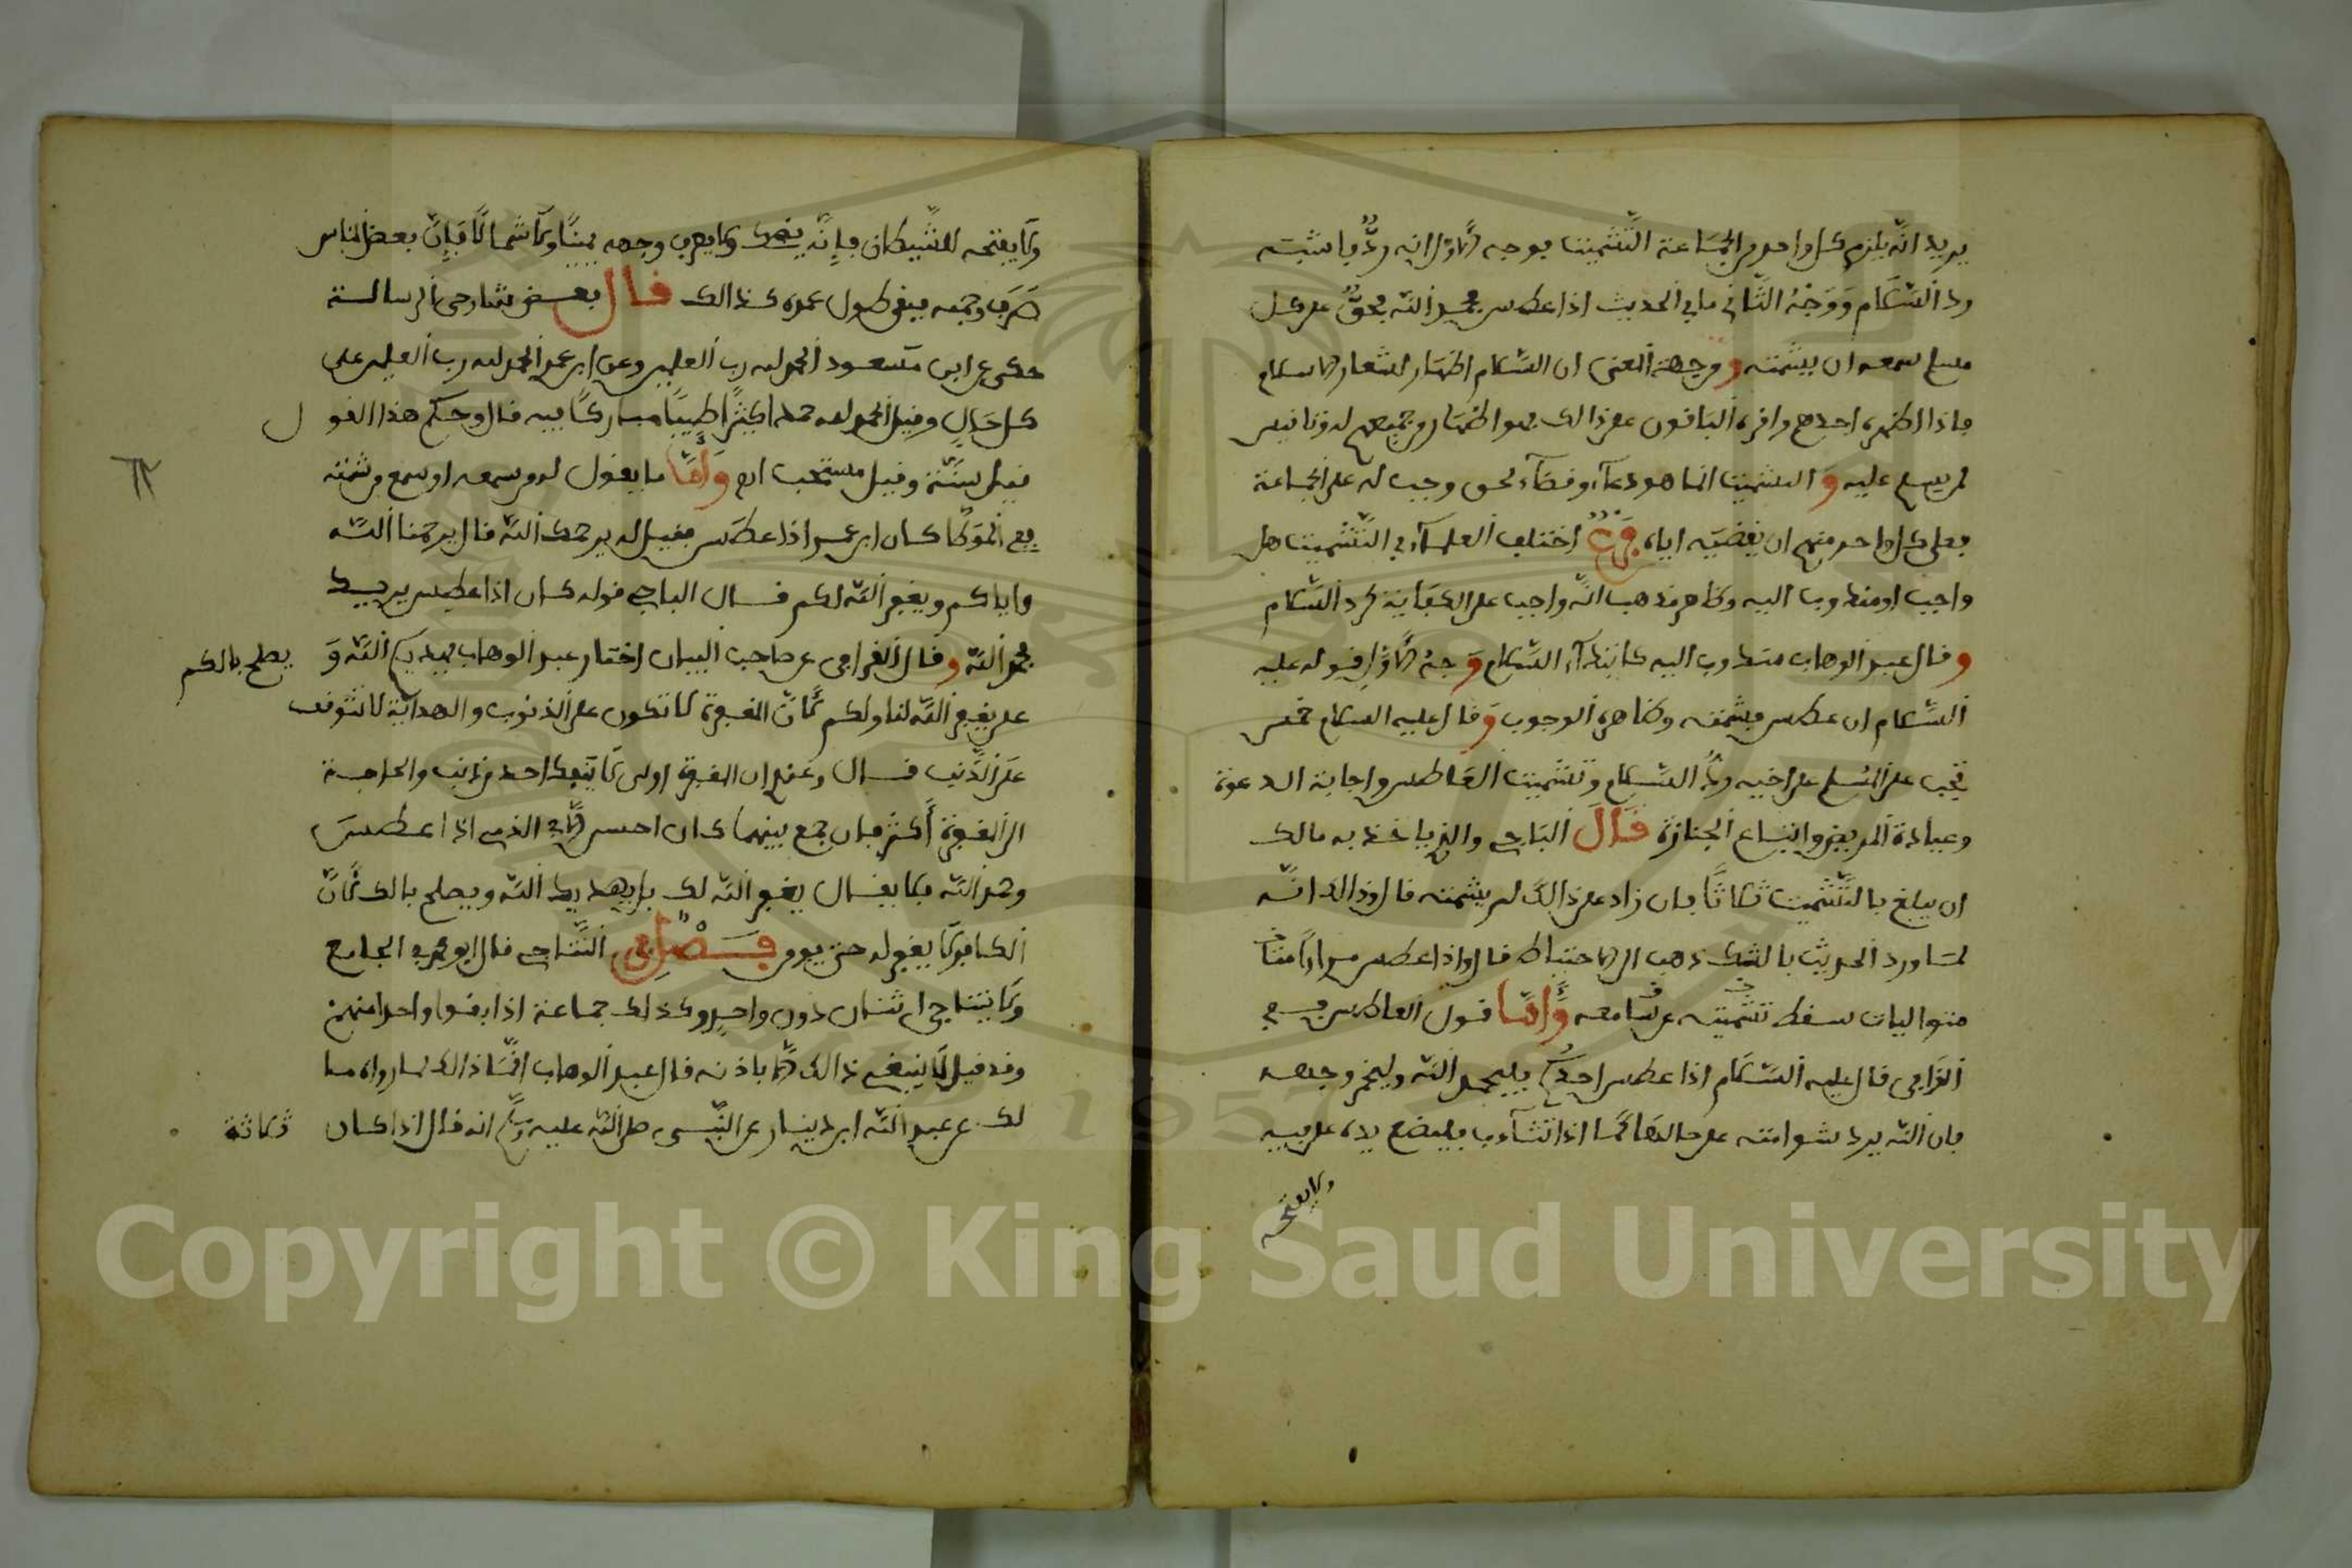 يريد انه يلزم كل واحد من الجماعة التشميت بوجه الاول انه رد باشبه
رد السلام ووجه الثاني ما في الحديث اذا عطس فحمد الله فحق على كل
مسلم سمعه ان يشمته ومن جهة المعنى ان السلام اظهار لشعار الاسلام
فاذا اظهره احدهم واقره الباقون على ذالك فهو اظهار من جميعهم له وتانيس
لمن يسلم عليه والتشميت انما هو دعاء وقضاء لحق وجب له على الجماعة
فعلى كل واحد منهم ان يقضيه اياه فرع اختلف العلماء في التشميت هل
واجب او مندوب اليه وظاهر مذهب انه واجب على الكفاية كرد السلام
وقال عبد الوهاب مندوب اليه كابتداء السلام وجه الاول قوله عليه
السلام ان عطس فشمته وظاهره الوجوب وقال عليه السلام خمس
تجب على المسلم على اخيه رد السلام وتشميت العاطس واجابة الدعوة
وعيادة المريض واتباع الجنازة قال الباجي والذي ياخذ به مالك
ان يبلغ بالتشميت ثلاثا فان زاد على ذالك لم يشمته قال وذالك انه
لما ورد الحديث بالشك ذهب الى الاحتياط قال واذا عطس مرارا
متواليات سقط تشميته عن سامعه واما قول العاطس ففي
القرافي قال عليه السلام اذا عطس احدكم فليحمد الله وليخمر وجهه
فان الله يرد شوامته على حالها كما اذا تثاءب فليضع يده على فيه
ولا يفتحه
ولا يفتحه للشيطان فإنه يضحك ولا يصرف وجهه يمينا ولا شمالا فإن بعض الناس
صرف وجهه فبقي طول عمره كذالك قال بعض شارحي الرسالة
حكي عن ابن مسعود الحمد لله رب العلمين وعن ابن عمر الحمد لله رب العلمين على
كل حال وقيل الحمد لله حمدا كثيرا طيبا مباركا فيه قال وحكم هذا القول
قيل سنة وقيل مستحب واما ما يقول له من سمعه او سمع من شمته
ففي الموطا كان ابن عمر اذا عطس فقيل له يرحمك الله قال يرحمنا الله
واياكم ويغفر الله لكم قال الباجي قوله كان اذا عطس يريد
فحمد الله وقال القرافي عن صاحب البيان اختار عبد الوهاب يهديكم الله و يصلح بالكم
على يغفر الله لنا ولكم لان المغفرة لا تكون على الذنوب والهداية لا تتوقف
على الذنب قال وعندي ان المغفرة اولى لا ينفك احد من ذنب والحاجة
الى المغفرة أكثر فان جمع بينهما كان احسن الا في الذمي اذا عطس
وحمد الله فلا يقال يغفر الله لك بل يهديك الله ويصلح بالك لان
الكافر لا يغفر له حتى يومن فصل في التناجي قال ابو محمد في الجامع
ولا يتناجى اثنان دون واحد وكذلك جماعة اذا بقوا واحدا منهم
وقد قيل لا ينبغي ذالك الا باذنه قال عبد الوهاب انما ذالك لما رواه ما
لك عن عبد الله ابن دينار عن النبي صلى الله عليه انه قال اذا كان ثلاثة